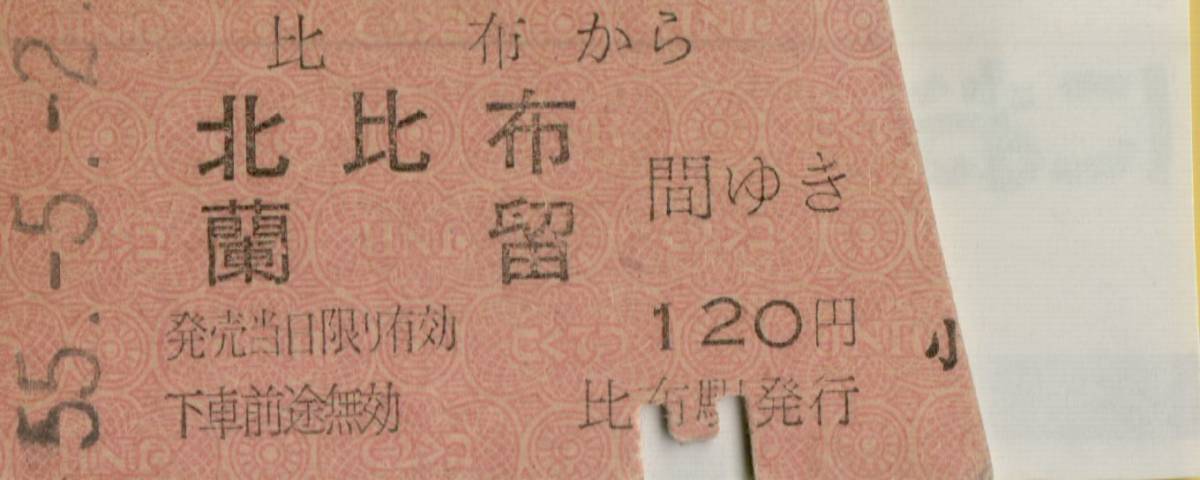 比布から
北比布
蘭留
間ゆき
発売当日限り有効
120円
下車前途無効
比布駅発行
小
55.-5.-2.